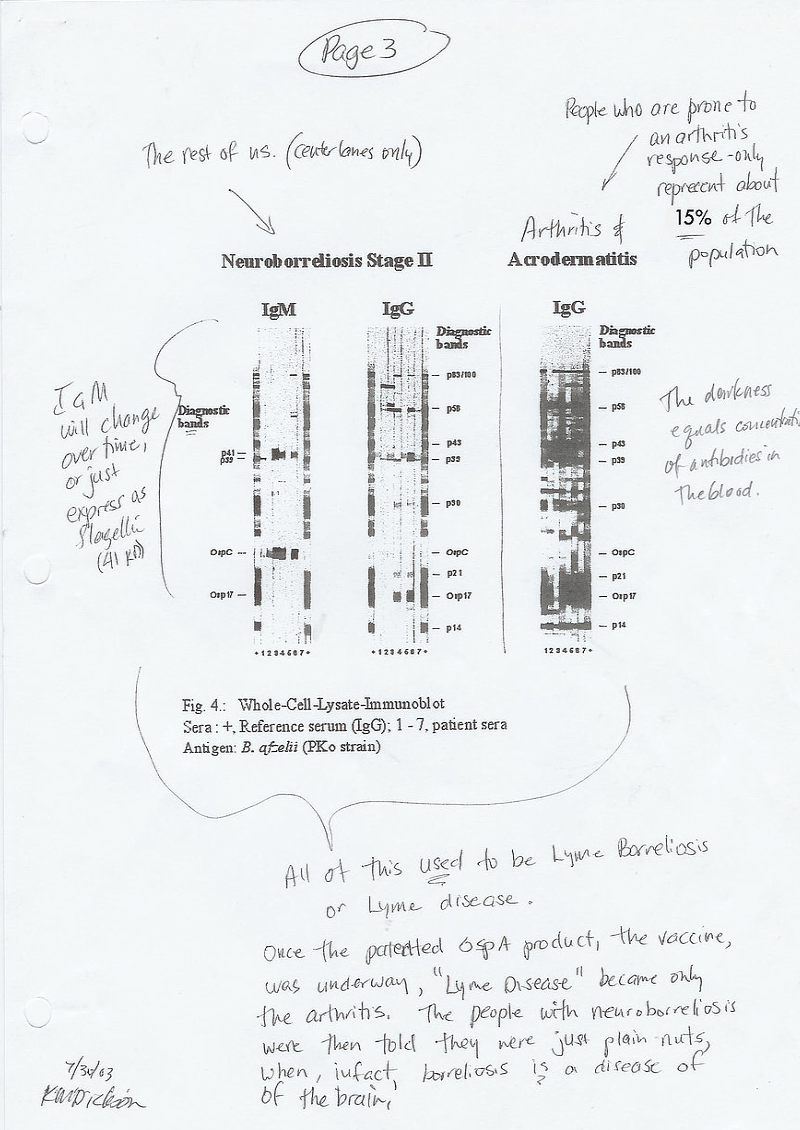 Page 3
People who are prone to
an arthritis
response - only
represent about
15% of the
population
The rest of us. (center lanes only)
Arthritis &
Neuroborreliosis Stage II
Acrodermatitis
IgM
IgG
Diagnostic
bands
IgG
Diagnostic
bands
IgM
will change
over time,
or just
express as
(41 kD)
Diagnostic
bands
p41
p39
OspC
Osp17
p83/100
p58
p43
p39
p30
OspC
p21
Osp17
p14
p83/100
p58
p43
p39
p30
OspC
p21
Osp17
p14
The darkness
equals
of antibodies in
the blood.
+ 1 2 3 4 5 6 7 +
+ 1 2 3 4 5 6 7 +
1 2 3 4 5 6 7 +
Fig. 4.: Whole-Cell-Lysate-Immunoblot
Sera : +, Reference serum (IgG); 1 - 7, patient sera
Antigen: B. afzelii (PKo strain)
All of this used to be Lyme Borreliosis
or Lyme disease.
Once the patented OspA product, the vaccine,
was underway, "Lyme Disease" became only
the arthritis. The people with neuroborreliosis
were then told they were just plain nuts,
when, infact, borreliosis is a disease of
of the brain,
KMDickson